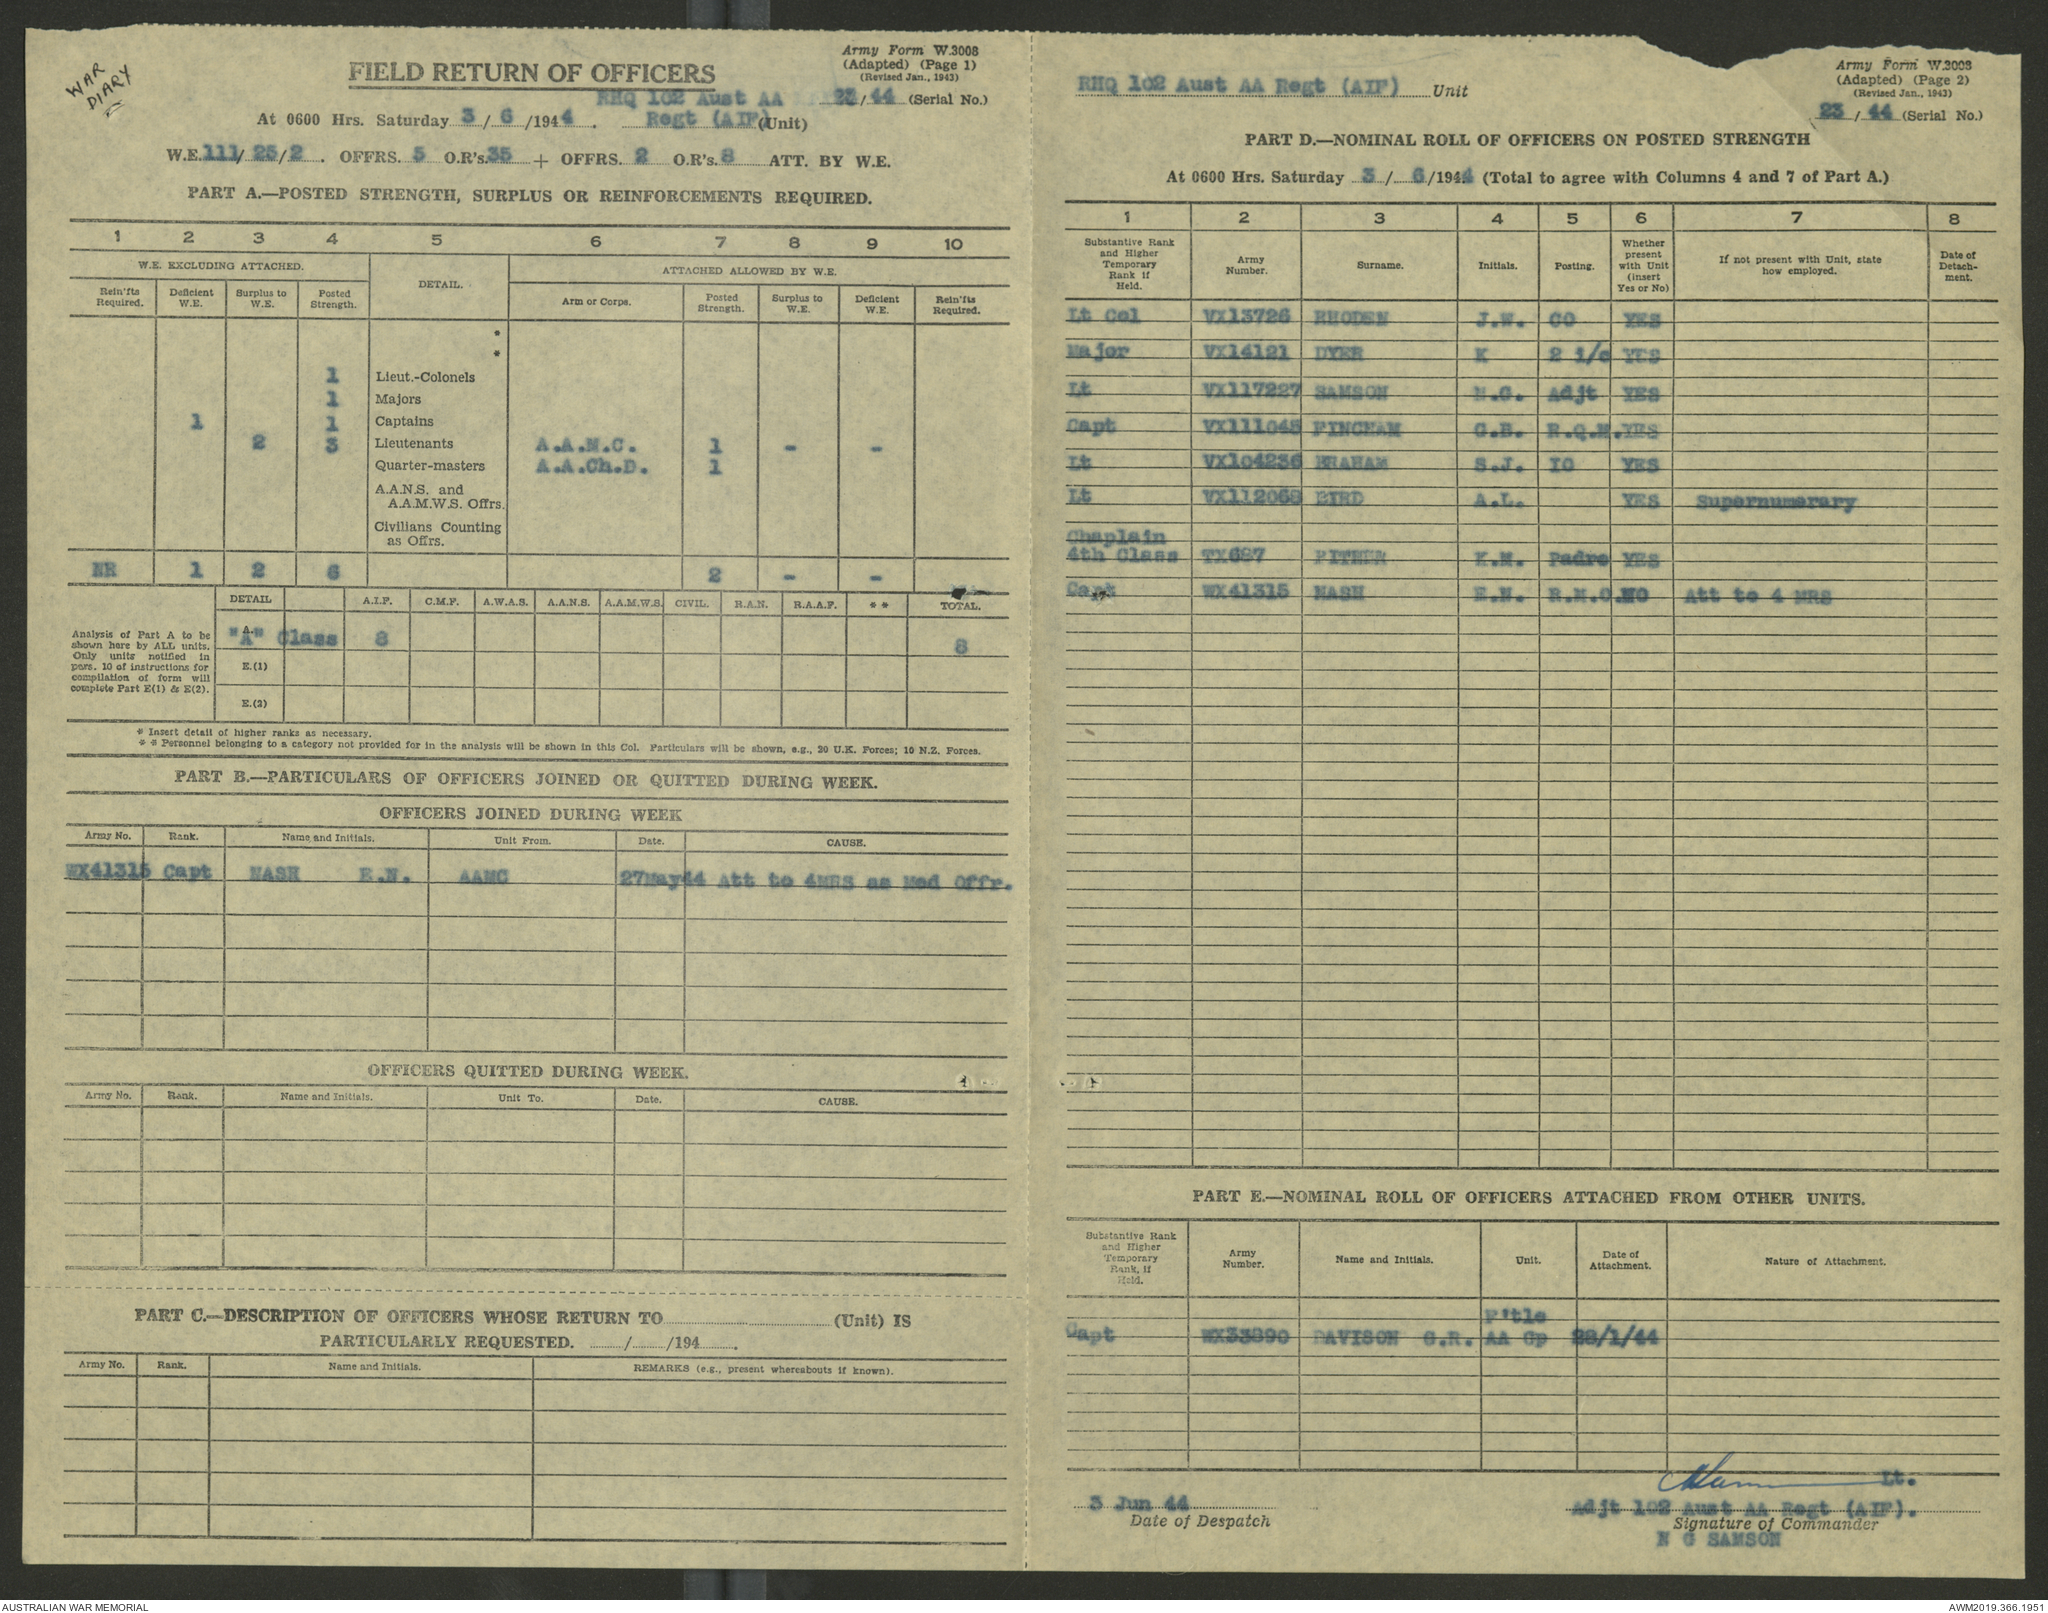 WAR
DIARY
Army Form W.3008
(Adapted) (Page 1)
(Revised Jan., 1943)
FIELD RETURN OF OFFICERS
RHQ 102 Aust AA 23/44 (Serial No.)
At 0600 Hrs. Saturday 3/6/1944. Regt (AIF) (Unit)
W.E. 111/25/2. OFFRS. 5 O.R's. 35 + OFFRS. 2 O.R's. 8 ATT. BY W.E.
PART A.—POSTED STRENGTH, SURPLUS OR REINFORCEMENTS REQUIRED.
1 2 3 4 5 6 7 8 9 10
W.E. EXCLUDING ATTACHED. DETAIL. ATTACHED ALLOWED BY W.E.
Rein'fts Required. Deficient W.E. Surplus to W.E. Posted Strength. Arm or Corps. Posted Strength. Surplus to W.E. Deficient W.E. Rein'fts Required.
*
*
1 Lieut.-Colonels
1 Majors
1 1 Captains
2 3 Lieutenants A.A.M.C. 1 - -
Quarter-masters A.A.Ch.D. 1
A.A.N.S. and
A.A.M.W.S. Offrs.
Civilians Counting
as Offrs.
NR 1 2 6 2 - -
DETAIL A.I.F. C.M.F. A.W.A.S. A.A.N.S. A.A.M.W.S. CIVIL. R.A.N. R.A.A.F. * * TOTAL.
Analysis of Part A to be
shown here by ALL units.
Only units notified in
para. 10 of instructions for
compilation of form will
complete Part E(1) & E(2).
A.
"A" Class 8 8
E.(1)
E.(2)
* Insert detail of higher ranks as necessary.
* * Personnel belonging to a category not provided for in the analysis will be shown in this Col. Particulars will be shown, e.g., 20 U.K. Forces; 10 N.Z. Forces.
PART B.—PARTICULARS OF OFFICERS JOINED OR QUITTED DURING WEEK.
OFFICERS JOINED DURING WEEK
Army No. Rank. Name and Initials. Unit From. Date. CAUSE.
WX41315 Capt NASH E.N. AAMC 27May44 Att to 4MRS as Med Offr.
OFFICERS QUITTED DURING WEEK.
Army No. Rank. Name and Initials. Unit To. Date. CAUSE.
PART C.—DESCRIPTION OF OFFICERS WHOSE RETURN TO (Unit) IS
PARTICULARLY REQUESTED. / /194 .
Army No. Rank. Name and Initials. REMARKS (e.g., present whereabouts if known).
Army Form W.3008
(Adapted) (Page 2)
(Revised Jan., 1943)
RHQ 102 Aust AA Regt (AIF) Unit
23/44 (Serial No.)
PART D.—NOMINAL ROLL OF OFFICERS ON POSTED STRENGTH
At 0600 Hrs. Saturday 3/6/1944 (Total to agree with Columns 4 and 7 of Part A.)
1 2 3 4 5 6 7 8
Substantive Rank and Higher Temporary Rank if Held. Army Number. Surname. Initials. Posting. Whether present with Unit (insert Yes or No) If not present with Unit, state how employed. Date of Detachment.
Lt Col VX13726 RHODEN J.W. CO YES
Major VX14121 DYER K 2 i/c YES
Lt VX117227 SAMSON N.G. Adjt YES
Capt VX111045 FINCHAM G.B. R.Q.M. YES
Lt VX104236 BRAHAM S.J. IO YES
Lt VX112068 BIRD A.L. YES Supernumerary
Chaplain
4th Class TX687 PITHER K.M. Padre YES
Capt WX41315 NASH E.N. R.M.O. NO Att to 4 MRS
PART E.—NOMINAL ROLL OF OFFICERS ATTACHED FROM OTHER UNITS.
Substantive Rank and Higher Temporary Rank, if Held. Army Number. Name and Initials. Unit. Date of Attachment. Nature of Attachment.
F'tle
Capt WX33890 DAVISON G.R. AA Gp 28/1/44
Lt.
3 Jun 44 Adjt 102 Aust AA Regt (AIF).
Date of Despatch Signature of Commander
N G SAMSON
AUSTRALIAN WAR MEMORIAL AWM2019.366.1951